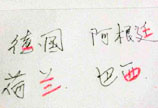 德国 阿根廷
荷兰 巴西